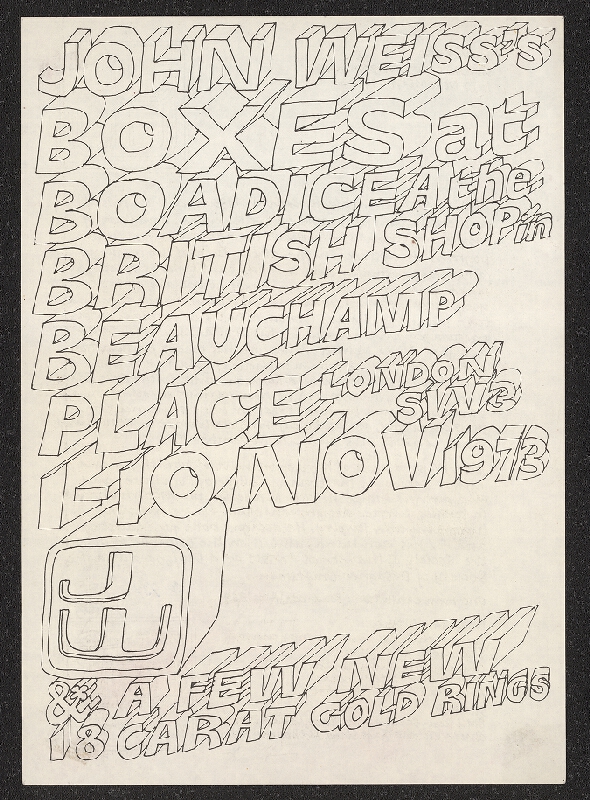 JOHN WEISS'S
BOXES at
BOADICEA the
BRITISH SHOP in
BEAUCHAMP
PLACE LONDON
SW3
1-10 NOV 1973
JW
& A FEW NEW
18 CARAT GOLD RINGS